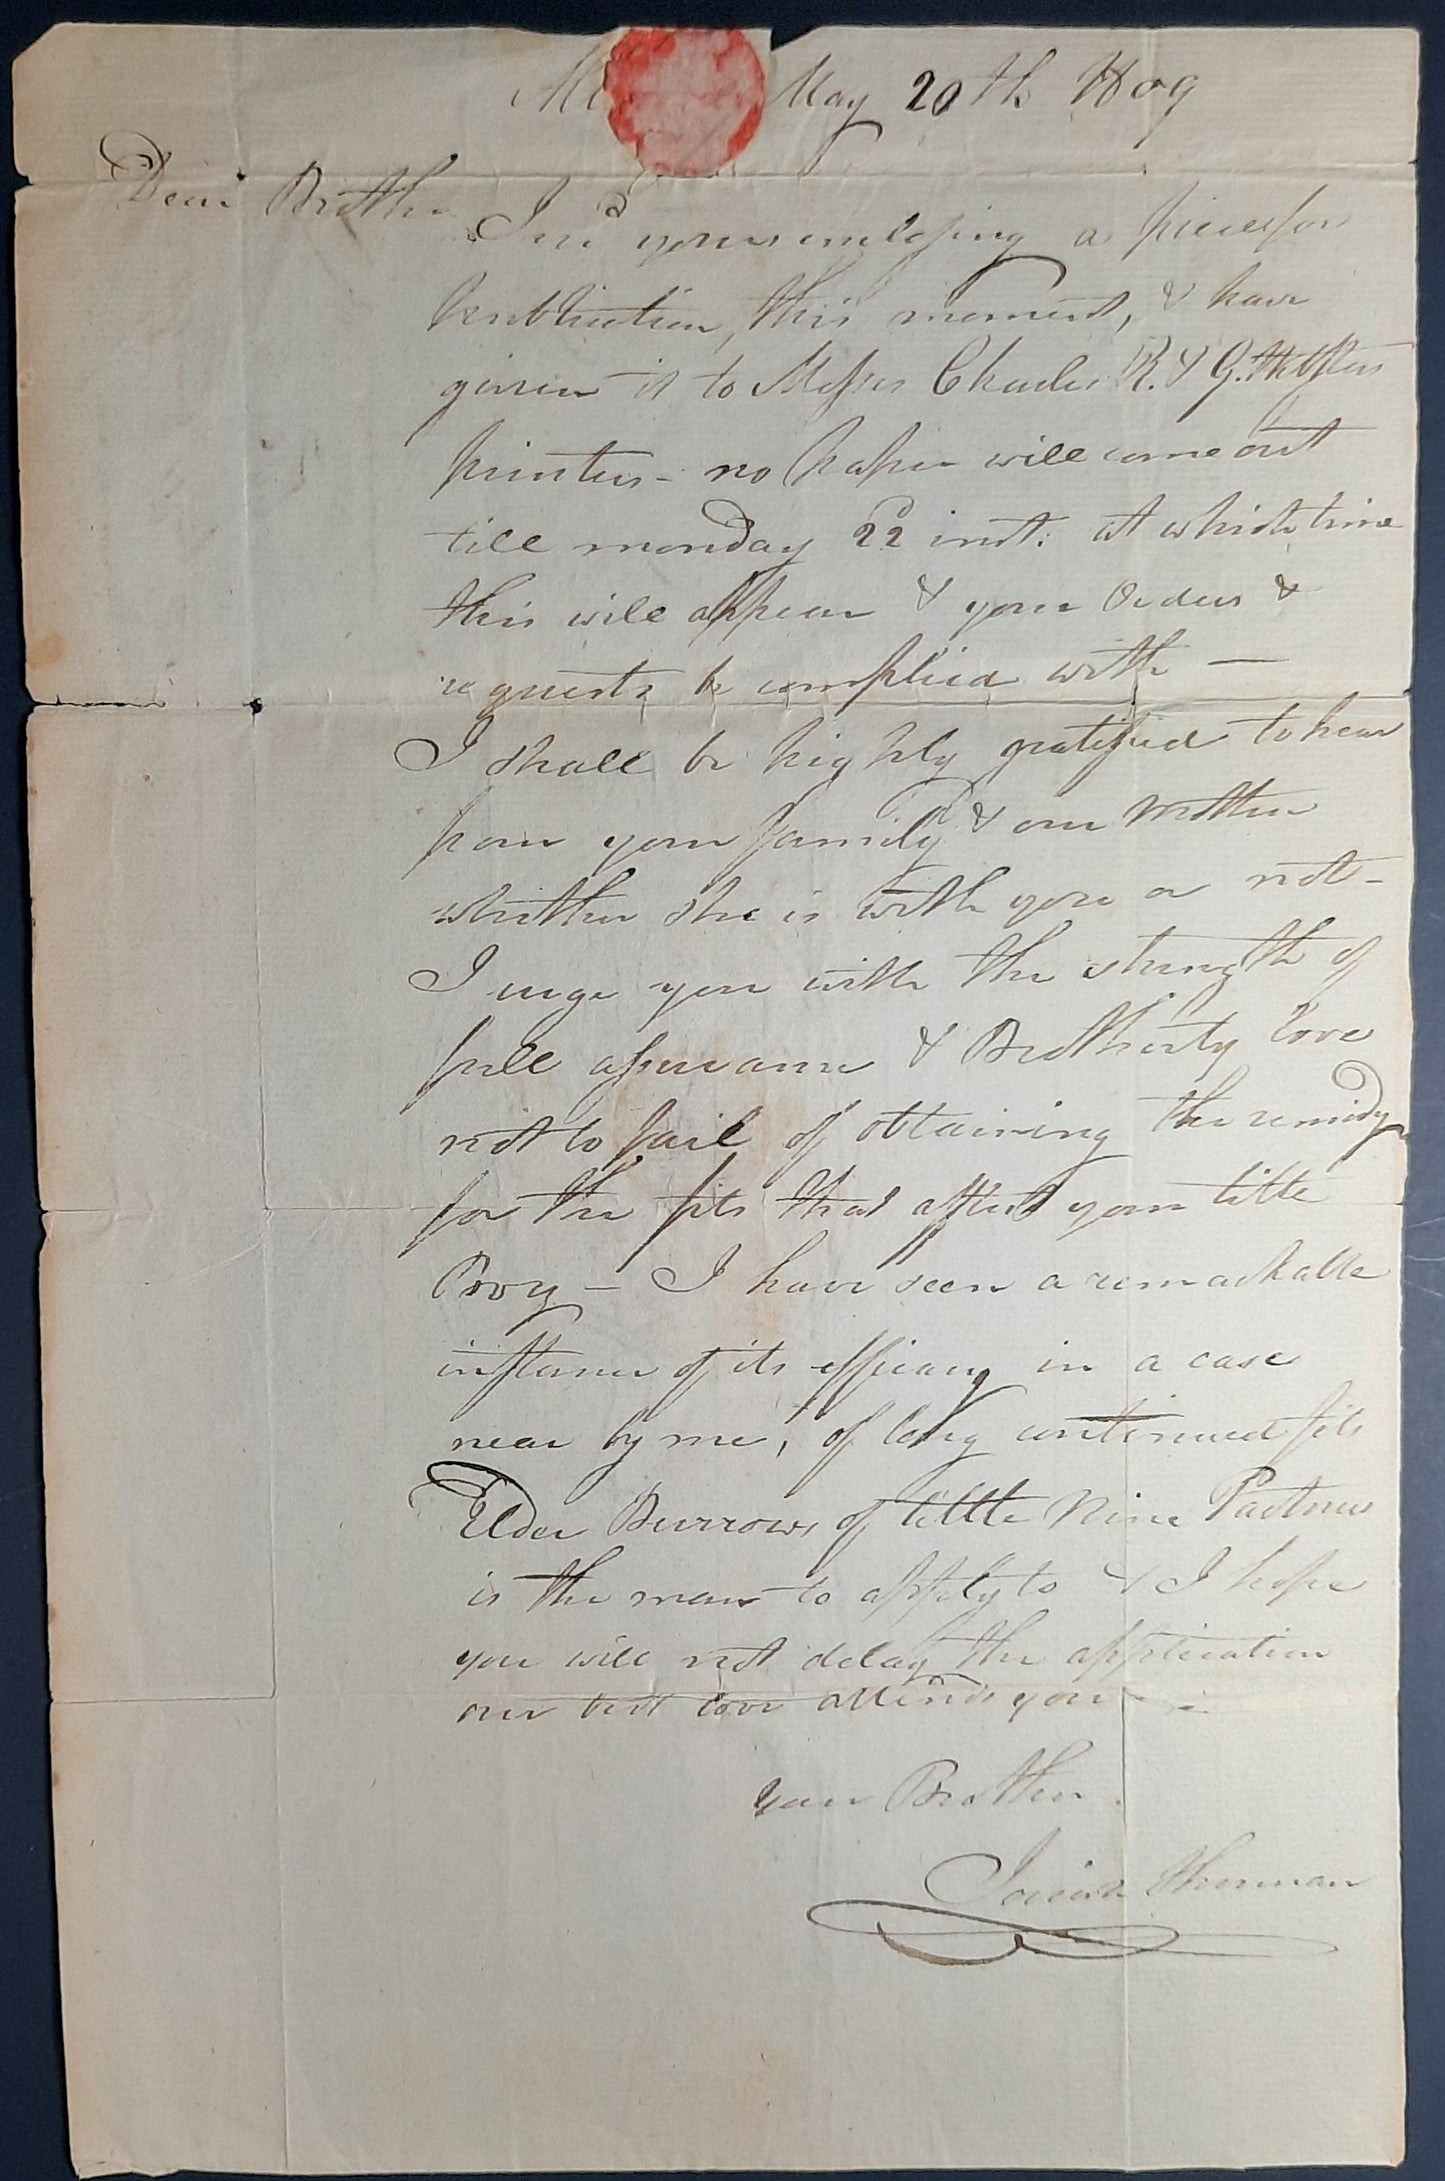 May 20th 1809
Dear Brother
I recd yours enclosing a piece for
Publication, this moment, & have
given it to Messrs Charles R. & G. Webster
printers - no paper will come out
till monday 22d inst: at which time
this will appear & your Orders &
requests be complied with —
I shall be highly gratified to hear
from your family & our Mother
whether she is with you or not -
I urge you with the strength of
full assurance & Brotherly love
not to fail of obtaining the remidy
for the fits that attend your little
Boy - I have seen a remarkable
instance of its efficacy in a case
near by me, of long continued fits
Elder Burrows of little Nine Partners
is the man to apply to & I hope
you will not delay the application
our best love attends you -
your Brother
Josiah Sherman